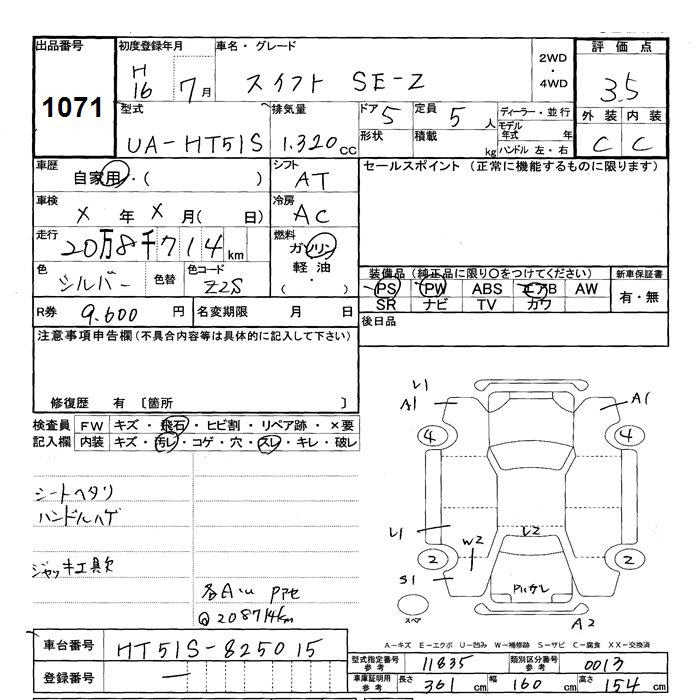 出品番号 初度登録年月 車名・グレード 2WD・4WD 評価点
1071 H16 7月 スイフト SE-Z 3.5
型式 排気量 ドア 5 定員 5人 ディーラー・並行 外装 内装
UA-HT51S 1.320cc 形状 積載 kg モデル年式 年 C C
ハンドル 左・右
車歴 シフト セールスポイント(正常に機能するものに限ります)
自家用・( ) AT
車検 冷房
X年 X月( 日) AC
走行 燃料
20万8千714km ガソリン
色 色替 色コード 軽油
シルバー Z2S ( ・ )
装備品(純正品に限り○をつけてください) 新車保証書
PS PW ABS エアB AW 有・無
SR ナビ TV カワ
R券 9.600円 名変期限 月 日 後日品
注意事項申告欄(不具合内容等は具体的に記入して下さい)
修復歴 有 〔箇所 〕
検査員 FW キズ・飛石・ヒビ割・リペア跡・×要
記入欄 内装 キズ・汚レ・コゲ・穴・スレ・キレ・破レ
シートヘタリ
ハンドルハゲ
ジャッキ工具欠
各Aいu
@208714km
L1
A1 A1
4 4
L1 W2 L2
2 2
S1
スペア A2
A-キズ E-エクボ U-凹み W-補修跡 S-サビ C-腐食 XX-交換済
車台番号 HT51S-825015
登録番号 ―
型式指定番号参考 11835 類別区分番号参考 0013
車庫証明用参考 長さ 361cm 幅 160cm 高さ 154cm